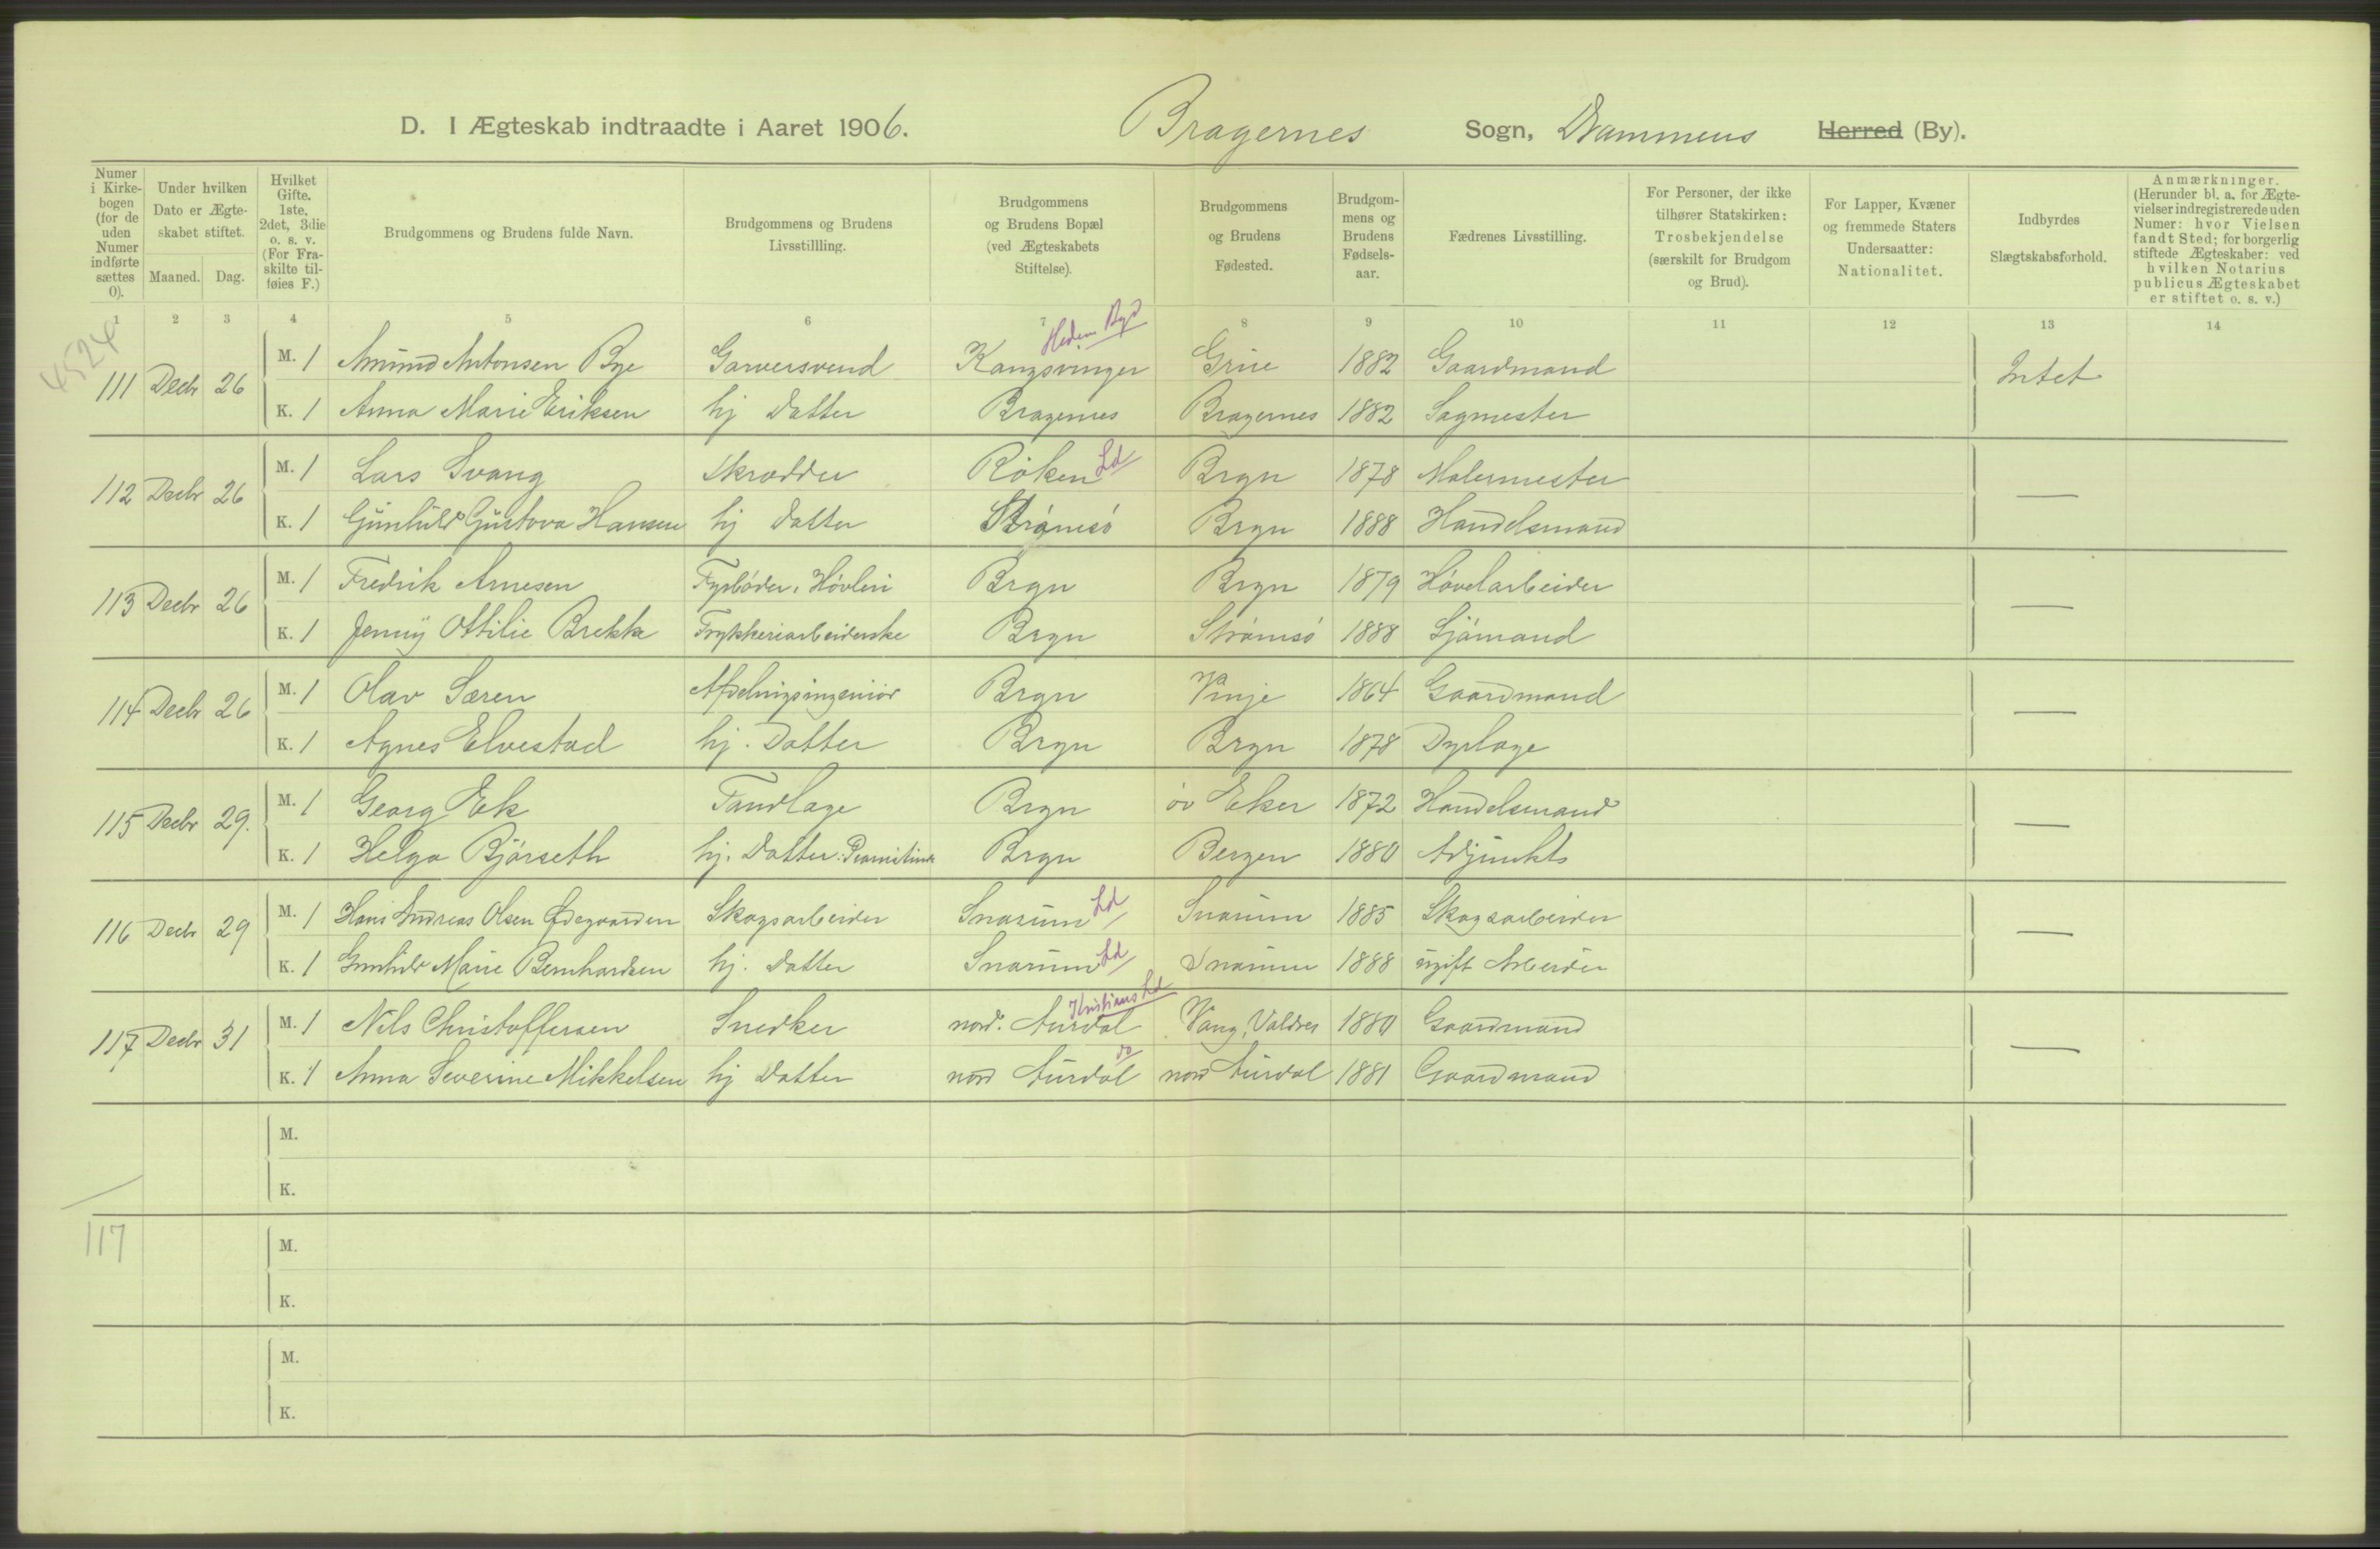 D. I Ægteskab indtraadte i Aaret 1906. Bragernes Sogn, Drammens Herred (By).
Numer i Kirkebogen (for de uden Numer indførte sættes 0).
Under hvilken Dato er Ægteskabet stiftet.
Maaned. Dag.
Hvilket Gifte. 1ste, 2det, 3die o. s. v. (For Fraskilte tilføies F.)
Brudgommens og Brudens fulde Navn.
Brudgommens og Brudens Livsstillling.
Brudgommens og Brudens Bopæl (ved Ægteskabets Stiftelse).
Brudgommens og Brudens Fødested.
Brudgommens og Brudens Fødselsaar.
Fædrenes Livsstilling.
For Personer, der ikke tilhører Statskirken: Trosbekjendelse (særskilt for Brudgom og Brud).
For Lapper, Kvæner og fremmede Staters Undersaatter: Nationalitet.
Indbyrdes Slægtskabsforhold.
Anmærkninger. (Herunder bl. a. for Ægtevielser indregistrerede uden Numer: hvor Vielsen fandt Sted; for borgerlig stiftede Ægteskaber: ved hvilken Notarius publicus Ægteskabet er stiftet o. s. v.)
1 2 3 4 5 6 7 8 9 10 11 12 13 14
4524
Hedm Byd
111 Decbr 26 M. 1 Amund Antonsen Bye Garversvend Kongsvinger Grue 1882 Gaardmand Intet
K. 1 Anna Marie Eriksen hj Datter Bragernes Bragernes 1882 Sagmester
112 Decbr 26 M. 1 Lars Svang Skrædder Röken Ld Brgn 1878 Malermester —
K. 1 Gunhild Gustava Hansen hj Datter Strömsö Brgn 1888 Handelsmand
113 Decbr 26 M. 1 Fredrik Arnesen Fyrböder, Høvleri Brgn Brgn 1879 Hövelarbeider —
K. 1 Jenny Ottilie Brekke Trykkeriarbeiderske Brgn Strömsö 1888 Sjömand
114 Decbr 26 M. 1 Olav Særen Afdelingsingeniör Brgn Vinje 1864 Gaardmand —
K. 1 Agnes Elvestad hj. Datter Brgn Brgn 1878 Dyrlæge
115 Decbr 29. M. 1 Georg Eek Tandlæge Brgn öv Eker 1872 Handelsmand —
K. 1 Helga Bjørseth hj. Datter: Pianistinde Brgn Bergen 1880 Adjunkts
116 Decbr 29 M. 1 Hans Andreas Olsen Ødegaarden Skogsarbeider Snarum Ld Snarum 1885 Skogsarbeider —
K. 1 Gunhild Marie Bernhardsen hj. Datter Snarum Ld Snarum 1888 ugift Arbeider
Kristians Ld
117 Decbr 31 M. 1 Nils Christoffersen Snedker nord. Aurdal Vang, Valdres 1880 Gaardmand —
K. 1 Anna Severine Mikkelsen hj Datter nord Aurdal do nord Aurdal 1881 Gaardmand
M.
K.
117
M.
K.
M.
K.